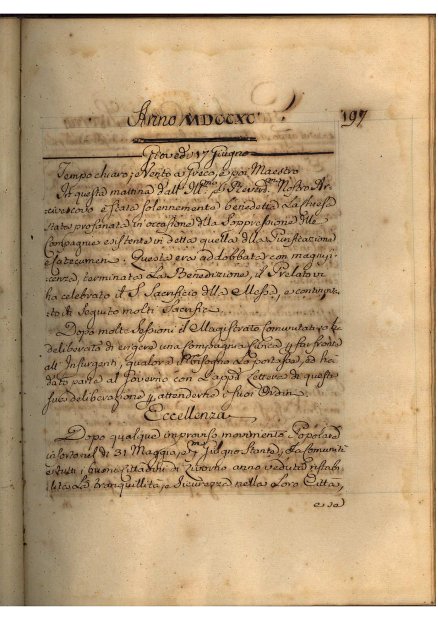 Anno MDCCXC
197
Giovedì 17 Giugno
Tempo chiaro, e Vento a Greco, e poi Maestro
In questa mattina dall' Ill.mo e Reverd.mo Nostro Ar
civescovo è stata solennemente benedetta La Chiesa
stata profanata in occasione dlla Soppressione dlle
Compagnie esistente in detta quella dlla Purificazione
e Catecumeni. Questa era addobbata con magnifi
cenza, terminata La Benedizione, il Prelato vi
ha celebrato il S. Sacrifizio dlla Messa, e
di seguito molti Sacrifizi.
Dopo molte Sessioni il Magistrato Comunitativo
deliberato di erigere una Compagnia Civica far fronte
all' Insurgenti, qualora il bisogno La portasse, ed ha
dato parte al Governo con L'appd. Lettera di questi
sue deliberazione attenderne i suoi Ordini
Eccellenza
Dopo qualque improviso movimento Popolare
nel di 31 Maggio, e Giugno Stante, La Comunità
e tutti i buoni Cittadini di Livorno anno veduta ristabi
lita La tranquillità, e Sicurezza nella Loro Città,